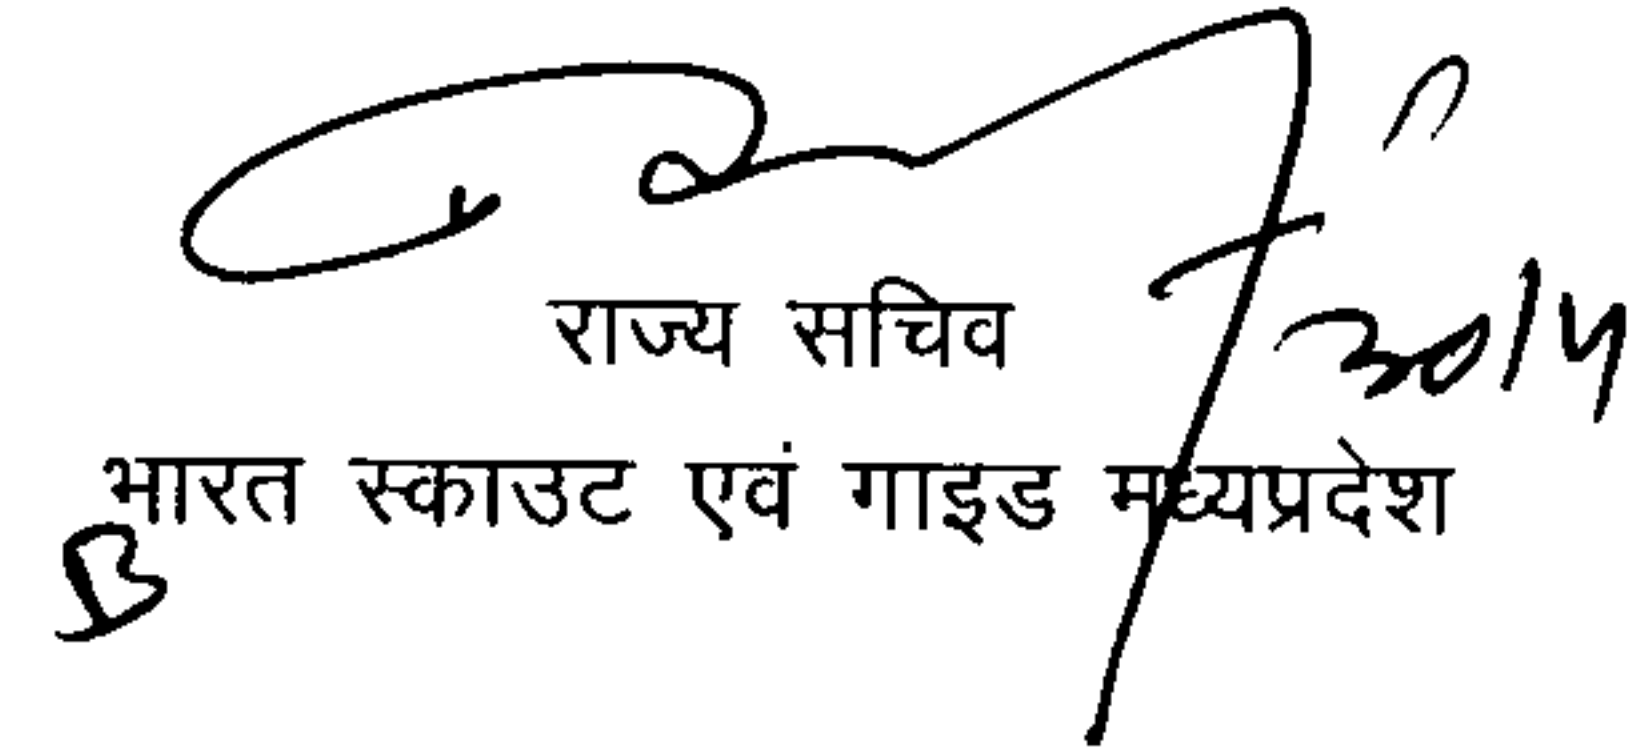 राज्य सचिव
30/4
भारत स्काउट एवं गाइड मध्यप्रदेश
B